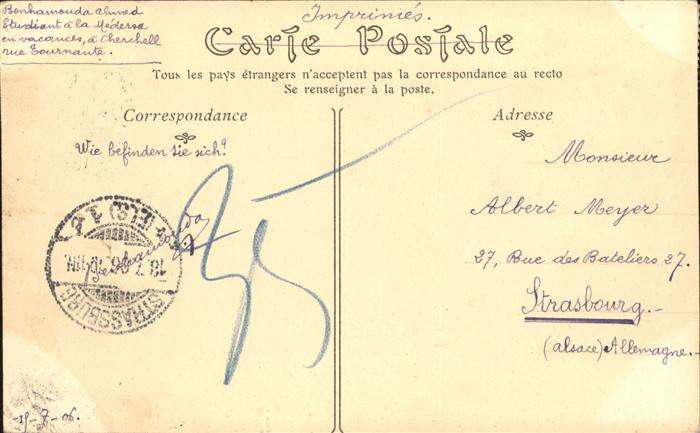 Bonhamouda Ahmed
Etudiant à la Médersa
en vacances, à Cherchell
rue Tournante.
Imprimés.
Carte Postale
Tous les pays étrangers n'acceptent pas la correspondance au recto
Se renseigner à la poste.
Correspondance
Wie befinden sie sich?
STRASSBURG
(ELS)
35
-15-7-06.
Adresse
Monsieur
Albert Meyer
27, Rue des Bateliers 27.
Strasbourg.-
(Alsace) Allemagne.-